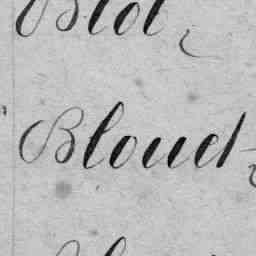 Blot
Blouet